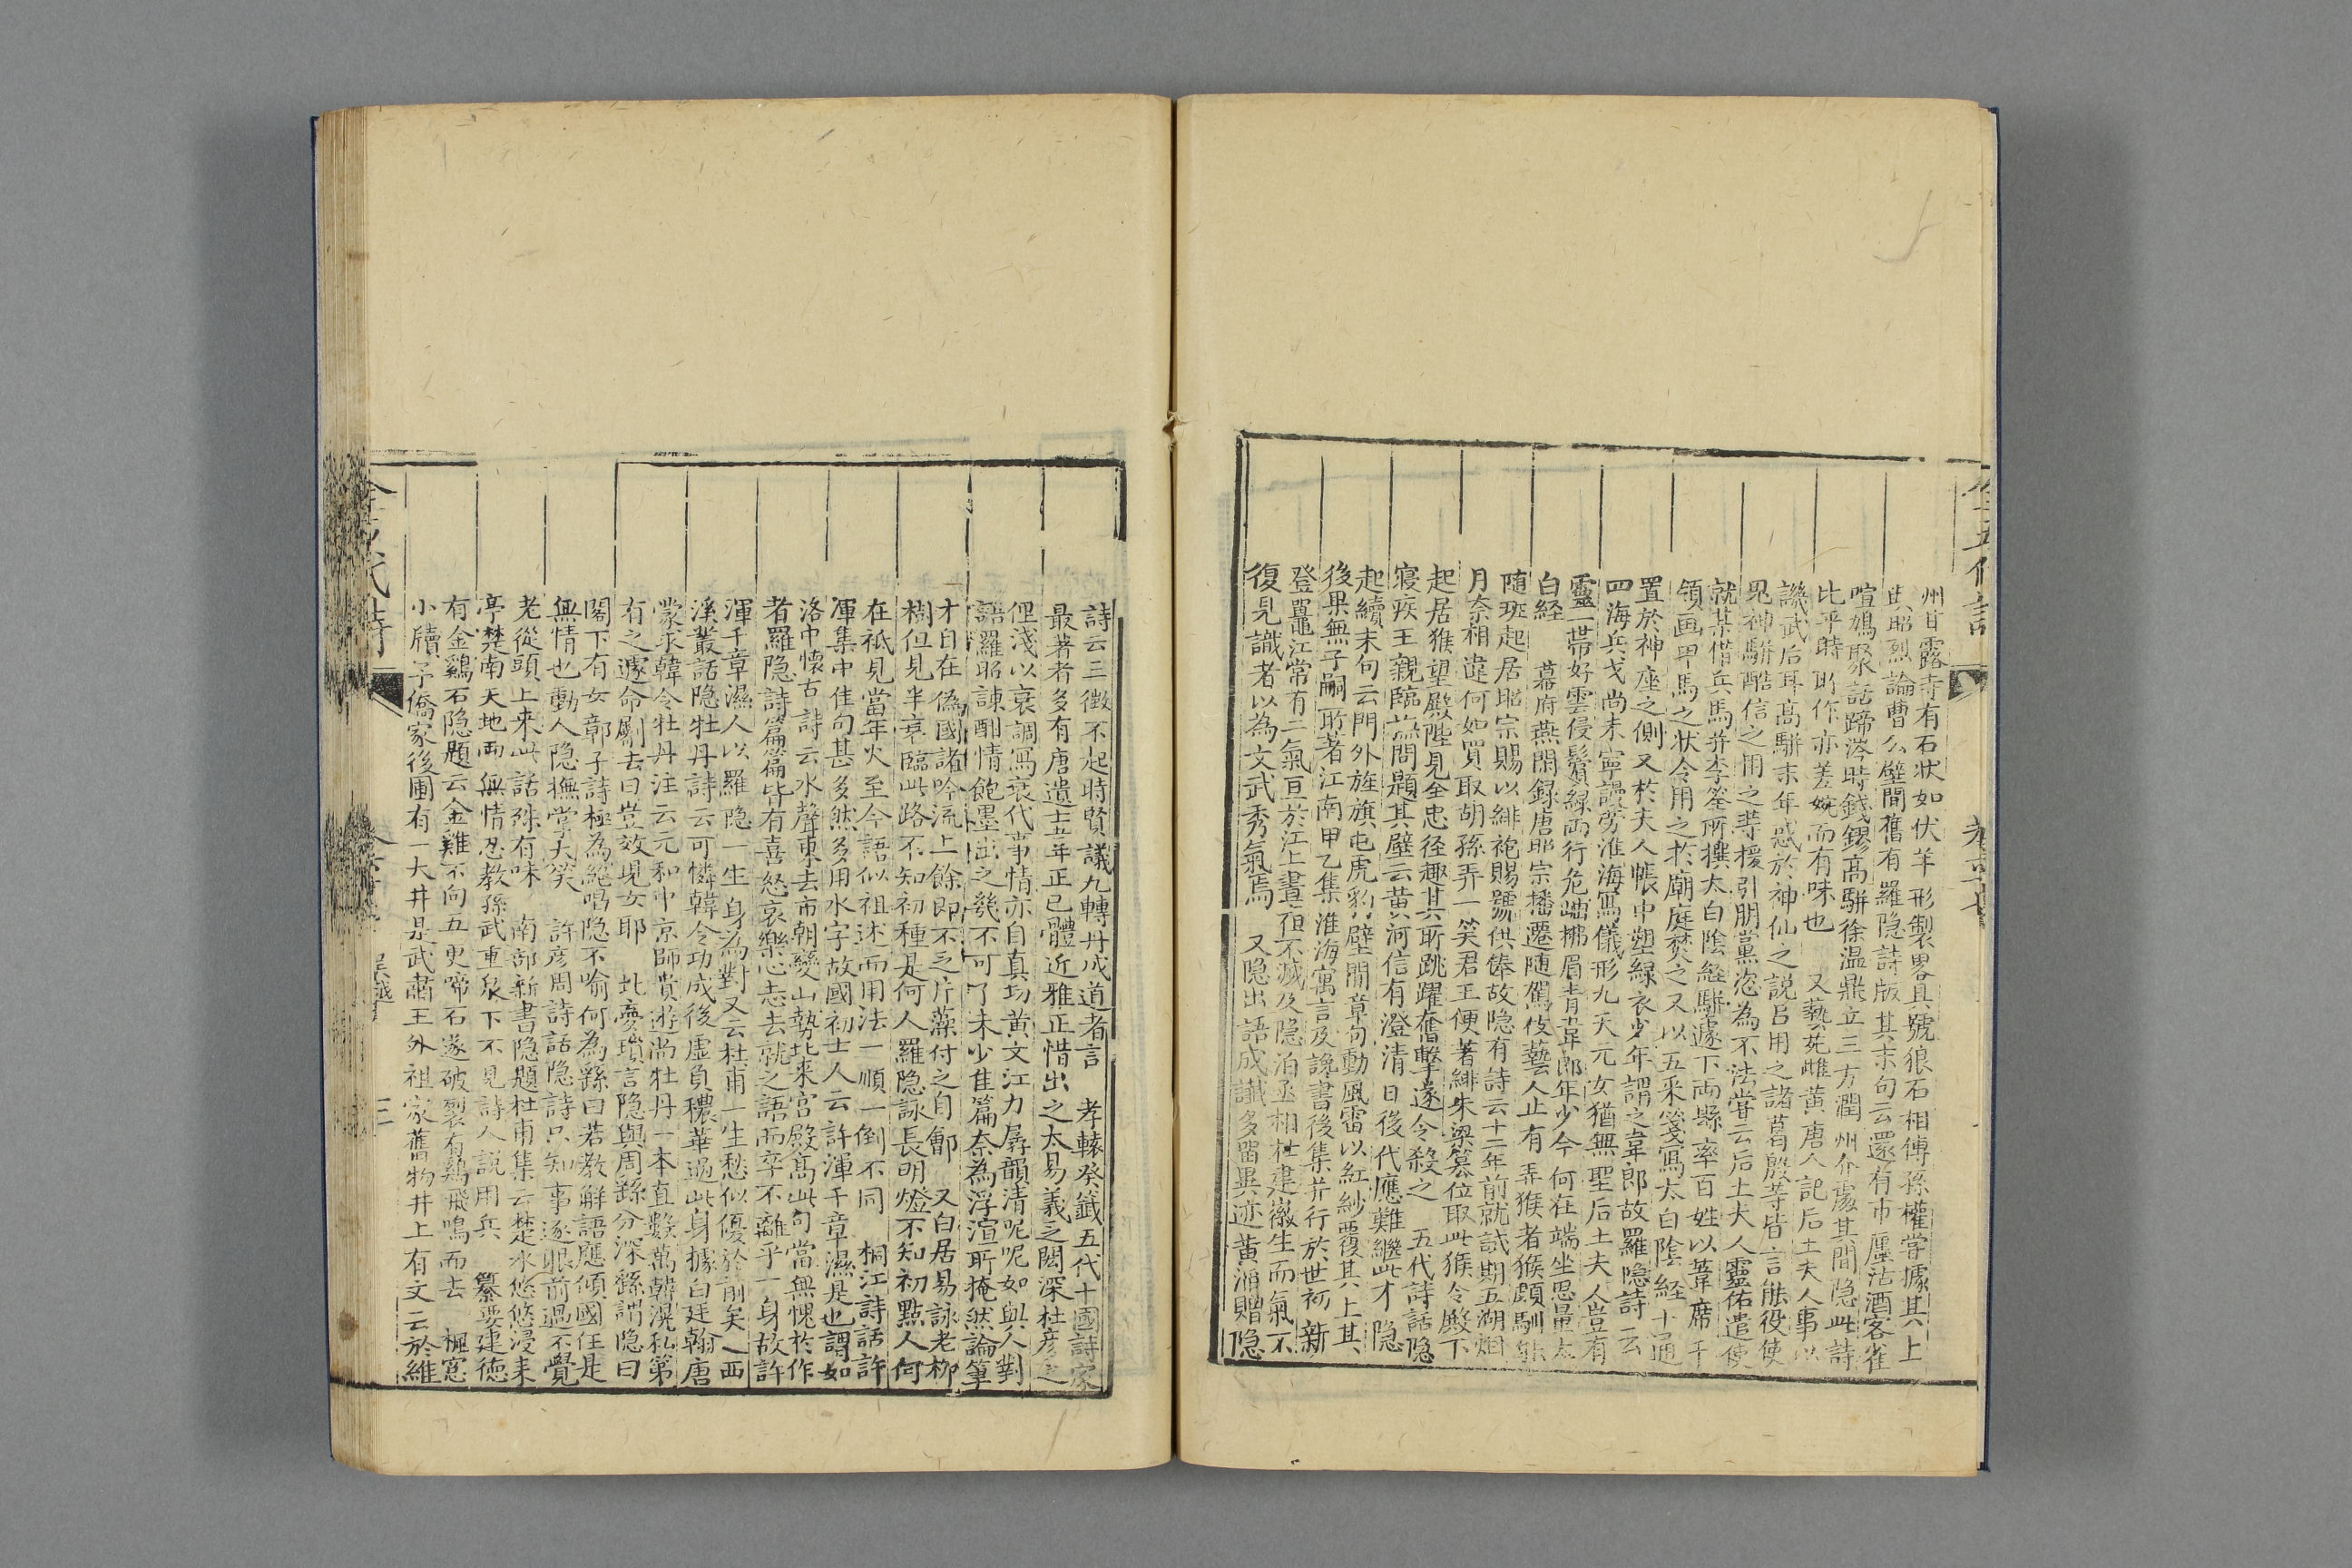 州甘露寺有石狀如伏羊形製畧具號狼石相傳孫權嘗據其上
與昭烈論曹公壁間舊有羅隐詩版其末句云還有市廛沽酒客雀
喧鳩聚話蹄涔時錢鏐高駢徐温鼎立三方潤州介處其間隐此詩
比平時所作亦差婉而有味也　又藝苑雌黄唐人記后土夫人事以
譏武后耳高駢末年惑於神仙之説吕用之諸葛殷等皆言能役使
鬼神駢酷信之用之等援引朋黨恣為不法嘗云后土夫人靈佑遣使
就某借兵馬并李筌所撰太白陰經駢遽下兩縣率百姓以葦席千
領画甲馬之状令用之扵廟庭焚之又以五采箋寫太白陰経十通
置於神座之側又扵夫人帳中塑緑衣少年謂之韋郎故羅隐詩云
四海兵戈尚未寧謾勞淮海寫儀形九天元女猶無聖后土夫人豈有
靈一帶好雲侵鬢緑兩行危岫拂眉青韋郎年少今何在端坐思量太
白経　幕府燕閑録唐昭宗播遷随駕伎藝人止有弄猴者猴頗馴能
随班起居昭宗賜以緋袍賜號供俸故隐有詩云十二年前就試期五湖烟
月奈相違何如買取胡孫弄一笑君王便著緋朱梁篡位取此猴令殿下
起居猴望殿陛見全忠径趣其所跳躍奮擊遂令殺之　五代詩話隐
寢疾王親臨撫問題其壁云黄河信有澄清日後代應難繼此才隐
起續末句云門外旌旗屯虎豹壁間章句動風雷以紅紗覆其上其
後果無子嗣所著江南甲乙集淮海寓言及讒書後集并行於世初新
登鼍江常有二氣亘於江上晝夜不滅及隐泊丞相杜建徽生而氣不
復見識者以為文武秀氣焉　又隐出語成讖多留異迹黄滔贈隐
詩云三徴不起時賢議九轉丹成道者言　孝轅癸籤五代十國詩家
最著者多有唐遺士韋正已體近雅正惜出之太易義乏閎深杜彦之
俚淺以衰調寫衰代事情亦自真切黄文江力孱韻清呢呢如與人對
語羅昭諫酣情飽墨出之幾不可了未少隹篇奈為浮渲所掩然論筆
才自在偽國諸吟流上餘即不乏片藻付之自鄶　又白居易詠老柳
樹但見半衰臨此路不知初種是何人羅隐詠長明燈不知初點人何
在祗見當年火至今語似祖述而用法一順一倒不同　桐江詩話許
渾集中佳句甚多然多用水字故國初士人云許渾千章濕是也謂如
洛中懷古詩云水聲東去市朝變山勢北来宫殿髙此句當無愧於作
者羅隐詩篇篇皆有喜怒哀樂心志去就之語而卒不離乎一身故許
渾千章濕人以羅隐一生身為對又云杜甫一生愁似優於前矣　西
溪叢話隐牡丹詩云可憐韓令功成後虛負穠華過此身據白廷翰唐
蒙求韓令牡丹注云元和中京師貴遊尚牡丹一本直數萬韓滉私第
有之遽命劚去曰豈效児女耶　北夢瑣言隐與周繇分深繇謂隐曰
閣下有女鄣子詩極為絕唱隐不喻何為繇曰若教解語應傾國任是
無情也動人隐撫掌大笑　許彦周詩話隐詩只知事逐眼前過不覺
老從頭上来此話殊有味　南部新書隐題杜甫集云楚水悠悠浸耒
亭楚南天地兩無情忍教孫武重泉下不見詩人説用兵　纂要建徳
有金鷄石隐題云金雞不向五更啼石遂破裂有鷄飛鳴而去　楓窓
小牘予僑家後圃有一大井是武肅王外祖家舊物井上有文云於維